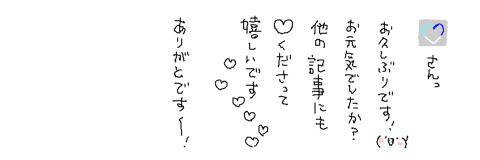 さんっ
お久しぶりです！('▽'*)
お元気でしたか？
他の記事にも
♡くださって
嬉しいです
ありがとです〜！